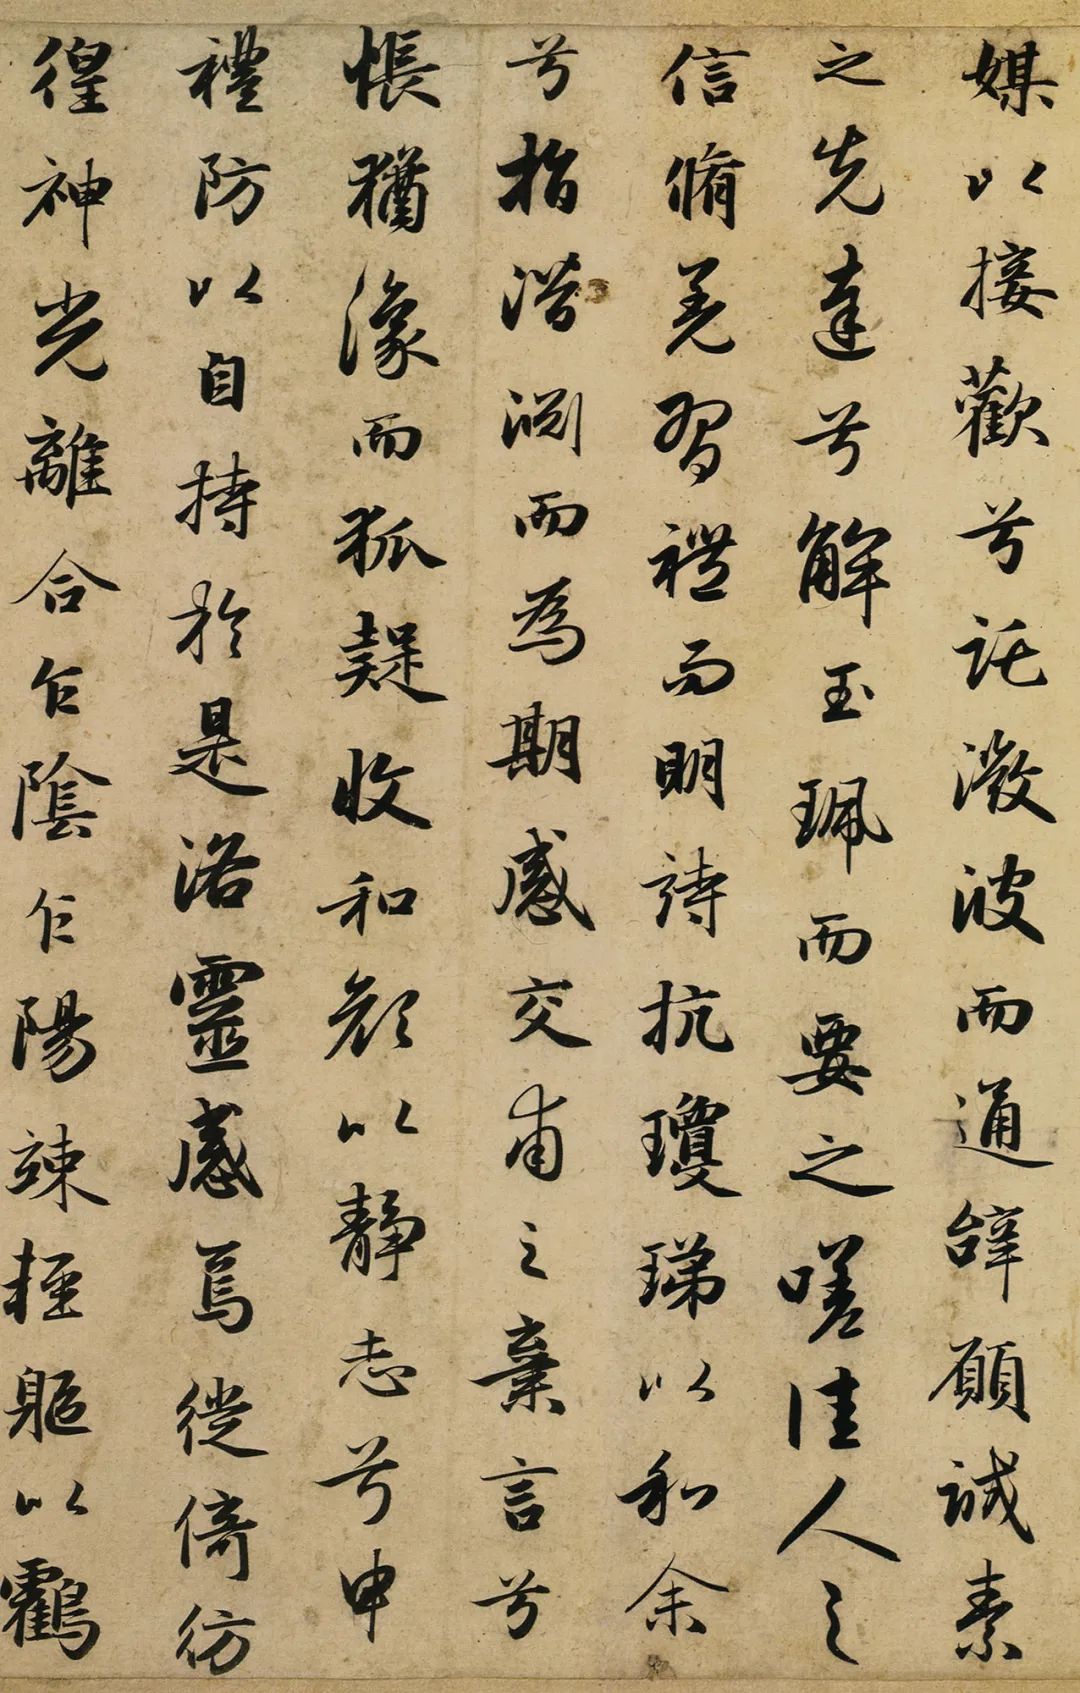 媒以接歡兮託微波而通辭願誠素
之先達兮解玉珮而要之嗟佳人之
信脩羌習禮而明詩抗瓊珶以和余
兮指潛淵而為期感交甫之棄言兮
悵猶豫而狐疑收和顏以靜志兮申
禮防以自持於是洛靈感焉徙倚彷
徨神光離合乍陰乍陽竦輕軀以鶴